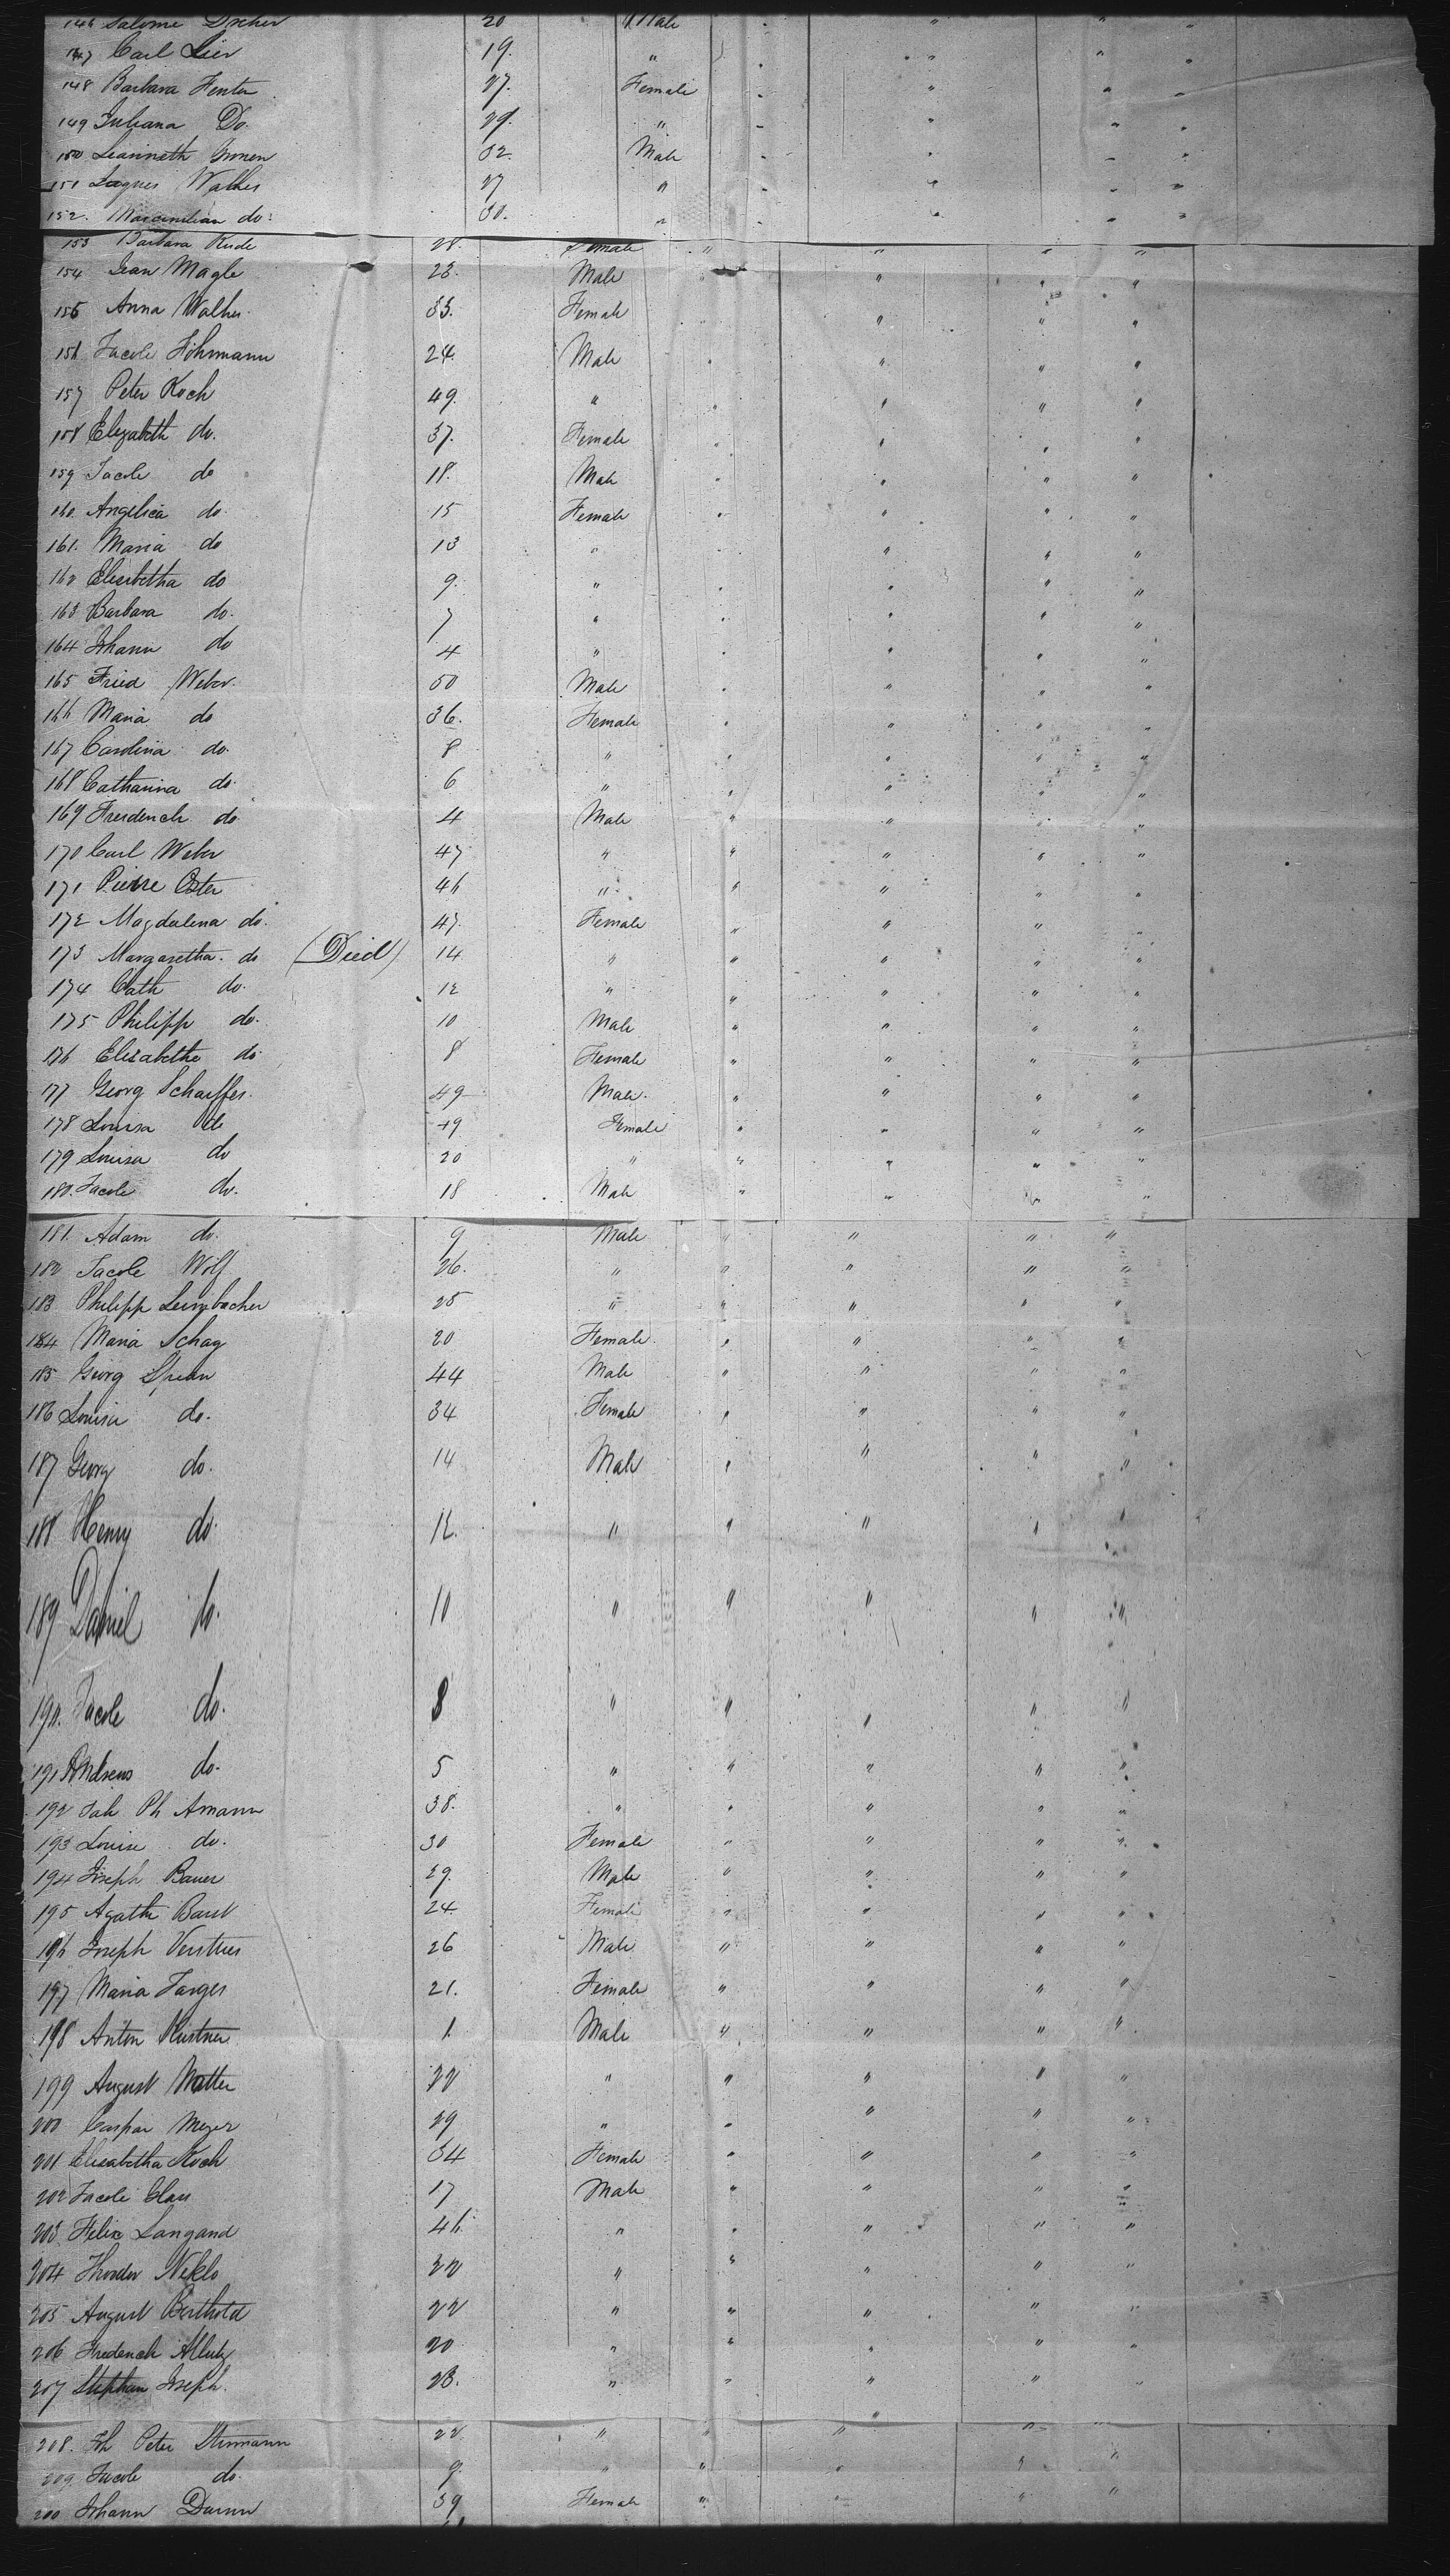 146 Salome 20 Male
147 Carl 19. "
148 Barbara 27. Female
149 Juliana Do. 29. "
150 32. Male
151 27 "
152. do: 30. "
153 Barbara 28. Female " " " "
154 Jean Magle 23. Male " " "
155 Anna Walher 33. Female " " "
156 Jacob Höhmann 24. Male " " "
157 Peter Koch 49. " " " "
158 Elizabeth do. 37. Female " " "
159 Jacob do 18. Male " " "
160. Angelica do. 15 Female " " "
161. Maria do 13 " " " "
162 Elisabetha do 9. " " " "
163 Barbara do. 7 " " " "
164 Johann do 4 " " " "
165 Fried Weber. 50 Male " " "
166 Maria do 36. Female " " "
167 Carolina do. 8 " " " " "
168 Catharina do. 6 " " " " "
169 Frederich do 4 Male " " " "
170 Carl Weber 47 " " " " "
171 Pierre Oster 46 " " " " "
172 Magdalena do. 47. Female " " " "
173 Margaretha. do (Died) 14 " " " " "
174 Cath do. 12 " " " " "
175 Philipp do. 10 Male " " " "
176 Elisabetha do 8 Female " " " "
177 Georg Schaeffer. 49 Male. " " " "
178 Louisa do 49 Female " " " "
179 Louisa do 20 " " " " "
180. Jacob do. 18 Male " " " "
181. Adam do. 9 Male " " " "
182 Jacob Wolf 26. " " " " "
183 Philipp Leimbacher 25 " " " " "
184 Maria Schag 20 Female. " " " "
185 Georg 44 Male " " " "
186 Louisa do. 34 Female " " " "
187 Georg do. 14 Male " " " "
188 Henry do. 12. " " " " "
189 Daniel do. 10 " " " " "
190. Jacob do. 8 " " " " "
191 Andreas do. 5 " " " " "
192 Jah Ph Amann 38. " " " " "
193 Louise do. 30 Female " " " "
194 Joseph Bauer 29. Male " " " "
195 Agatha Bast 24 Female " " " "
196 Joseph 26 Male " " " "
197 Maria Jarger 21. Female " " " "
198 Anton 1. Male " " " "
199 August Matter 22 " " " " "
200 Caspar Meyer 29 " " " " "
201 Elisabetha Koch 34 Female " " " "
202 Jacob Clau 17 Male " " " "
203. Felix Langand 46 " " " " "
204 Theodor Niklo 22 " " " " "
205 August Berthold 22 " " " " "
206 Frederich 20 " " " " "
207 Stephan Joseph. 23. " " " " "
208. Joh Peter 22 " " " " "
209. Jacob do. 9. " " " " "
200 Johann Darm 39 Female " " " "